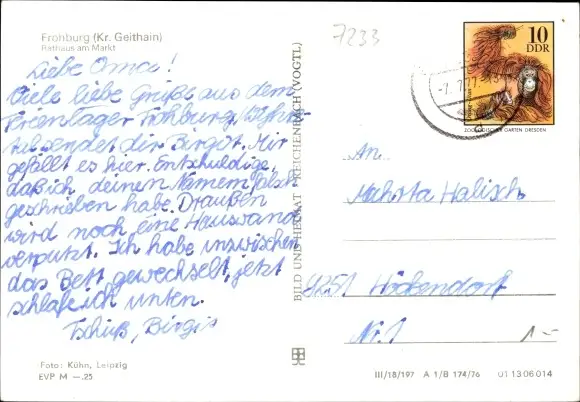 Frohburg (Kr. Geithain)
Rathaus am Markt
7233
10
DDR
ZOOLOGISCHER GARTEN DRESDEN
Liebe Oma!
Viele liebe Grüße aus dem
Ferienlager Frohburg
sendet dir Birgit. Mir
gefällt es hier. Entschuldige,
daß ich deinen Namen falsch
geschrieben habe. Draußen
wird noch eine Hauswand
verputzt. Ich habe inzwischen
das Bett gewechselt, jetzt
schlafe ich unten.
Tschüß, Birgit
BILD UND HEIMAT REICHENBACH (VOGTL)
An
Halisch
Höckendorf
Nr. 1
1.-
Foto: Kühn, Leipzig
EVP M —.25
III/18/197 A 1/B 174/76 01 13 06 014